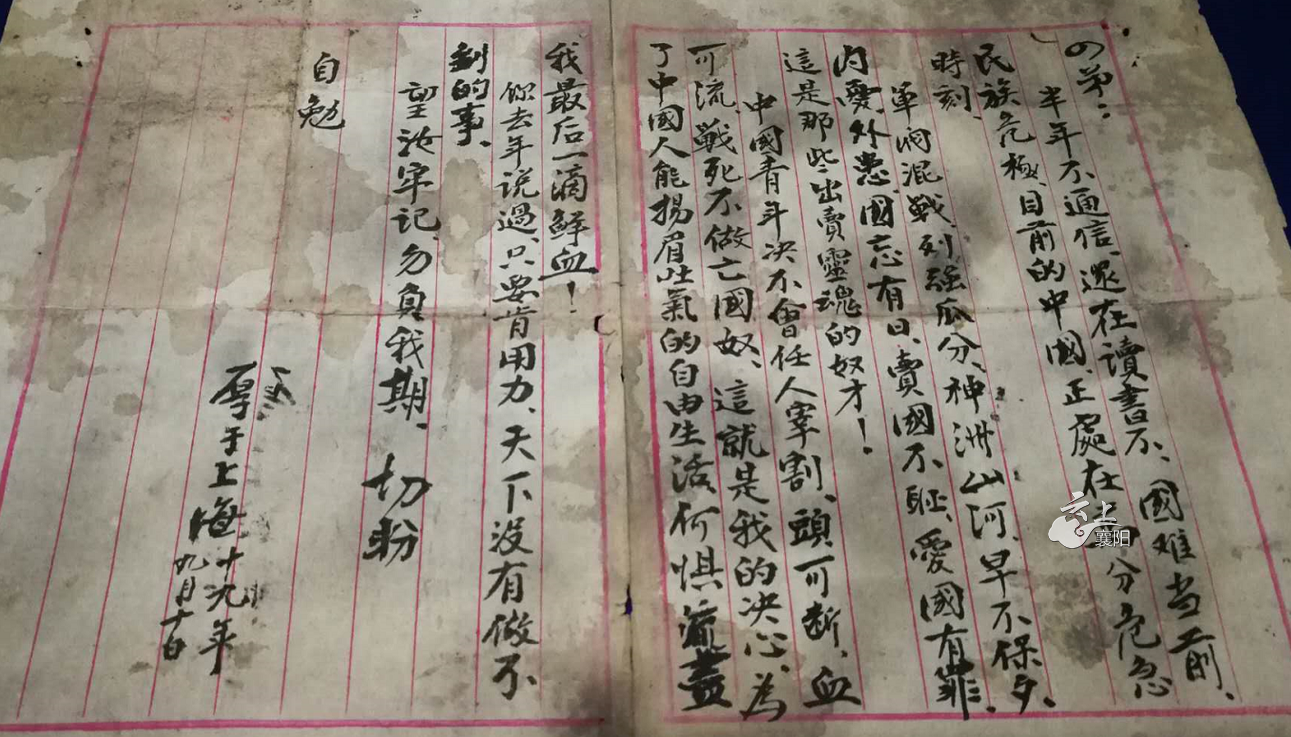 四弟：
半年不通信、還在读書不、國难当前、
民族危極、目前的中國、正處在分危急
時刻、
軍阀混戰、列强瓜分、神洲山河、早不保夕、
内憂、外患、國忘有日、賣國不耻、愛國有罪、
這是那些出賣靈魂的奴才！
中國青年决不會任人宰割、頭可断、血
可流、戰死不做亡國奴、這就是我的决心、為
了中國人能揚眉吐氣的自由生活、何惧流盡
我最后一滴鲜血！
你去年说過、只要肯用力、天下没有做不
到的事、
望汝牢记、勿負我期、切盼
自勉
厚于上海十九年
九月十日
云上
襄阳